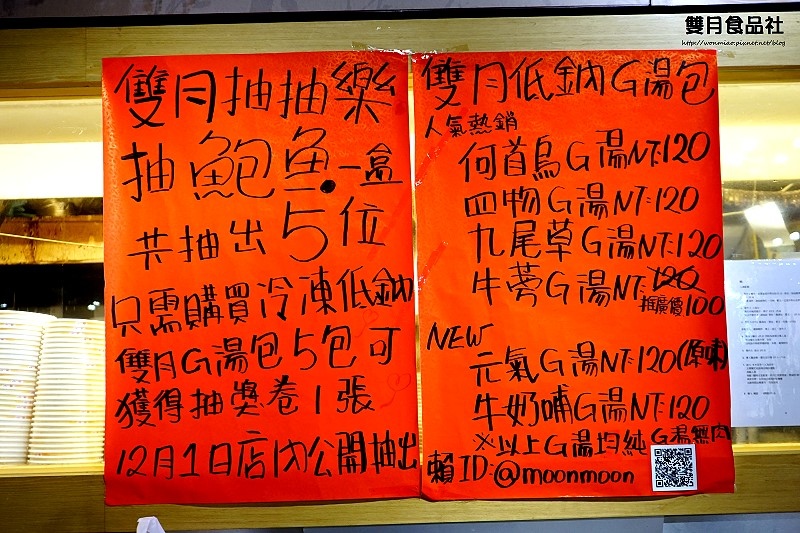 雙月食品社
http://wonmiao.pixnet.net/blog
雙月抽抽樂
抽鮑魚一盒
共抽出5位
只需購買冷凍低鈉
雙月G湯包5包可
獲得抽獎卷1張
12月1日店內公開抽出
雙月低鈉G湯包
人氣熱銷
何首烏G湯NT:120
四物G湯NT:120
九尾草G湯NT:120
牛蒡G湯NT:120
推廣價100
NEW
元氣G湯NT:120(原味)
牛奶哺G湯NT:120
※以上G湯均純G湯無肉
賴ID:@moonmoon